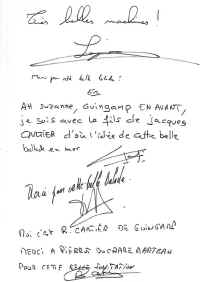 Très belles machines !
Merci pour cette belle balade !
AH SUZANNE, GUINGAMP EN AVANT,
je suis avec le fils de Jacques
CARTIER d'où l'idée de cette belle
ballade en mer
Merci pour cette belle balade.
Moi c'est R. CARTIER DE GUINGAMP
MERCI A PIERRE
POUR CETTE BELLE INVITATION